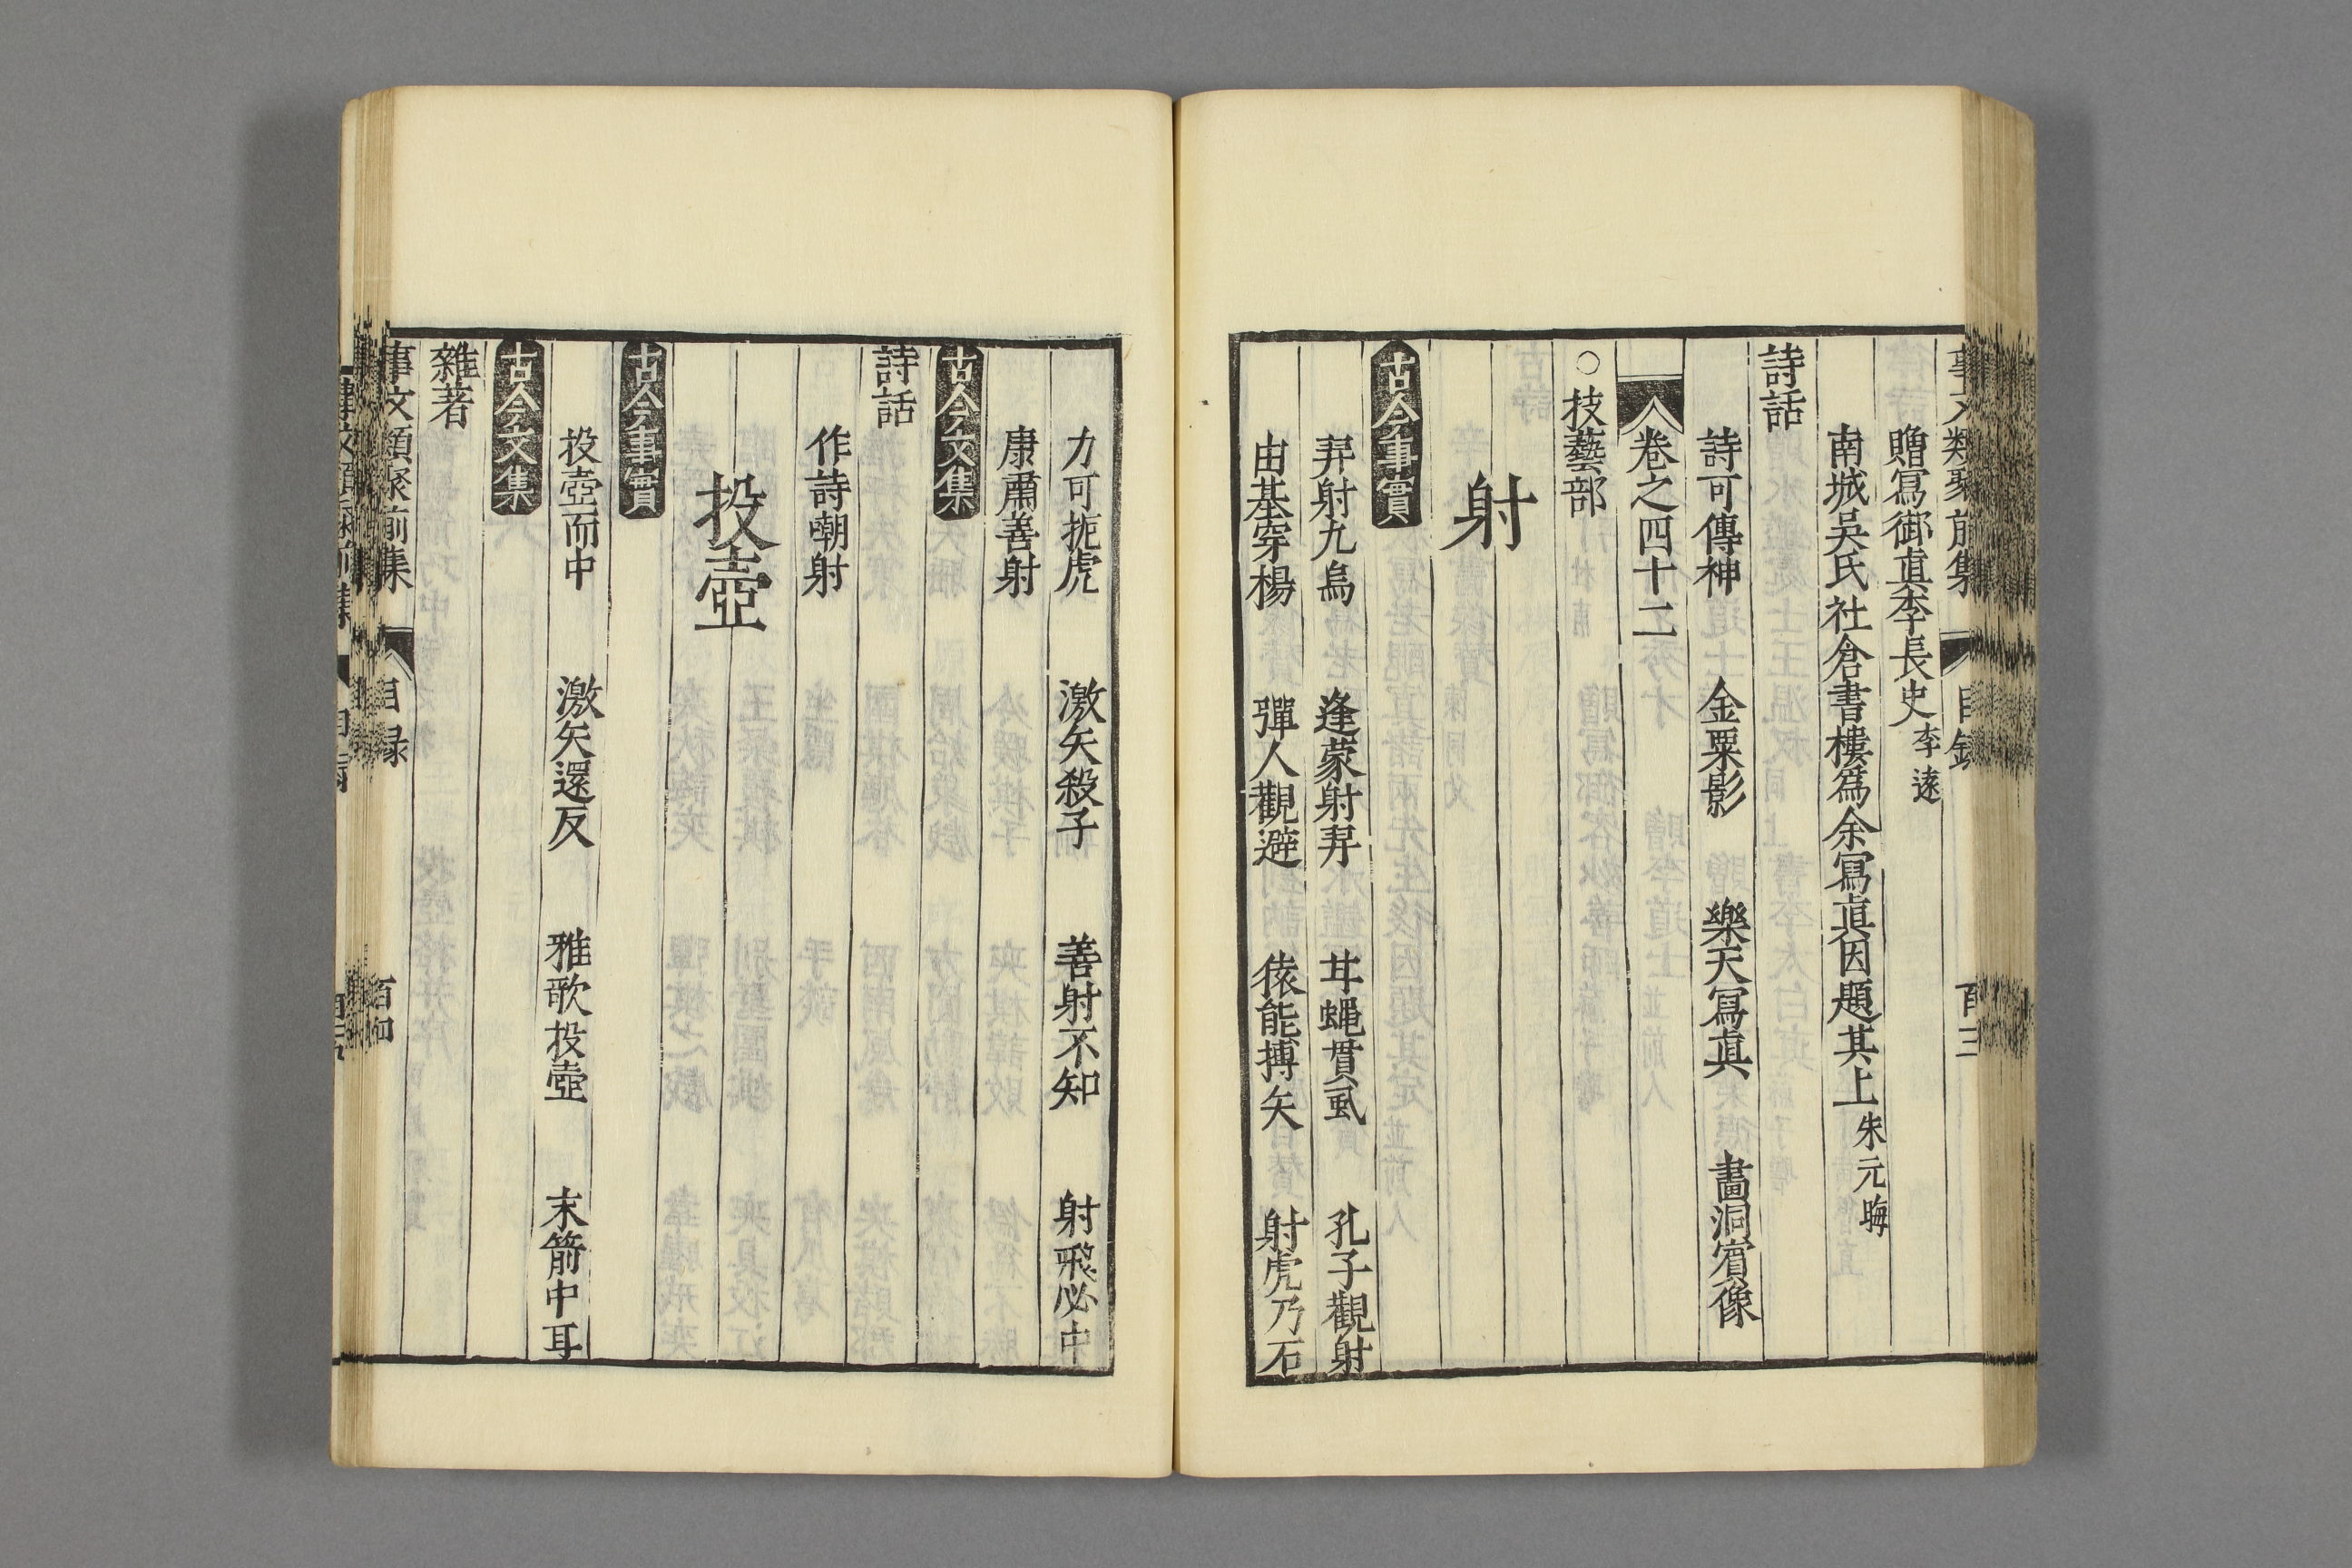 贈寫御真李長史 李遠
南城吳氏社倉書樓爲余寫真因題其上 朱元晦
詩話
詩可傳神 金粟影 樂天寫真 畫洞賓像
卷之四十二
○技藝部
射
古今事實
羿射九烏 逢蒙射羿 甘蠅貫虱 孔子觀射
由基穿楊 彈人觀避 猿能搏矢 射虎乃石
力可扼虎 激矢殺子 善射不知 射飛必中
康肅善射
古今文集
詩話
作詩嘲射
投壺
古今事實
投壺而中 激矢還反 雅歌投壺 末箭中耳
古今文集
雜著
事文類聚前集 目録